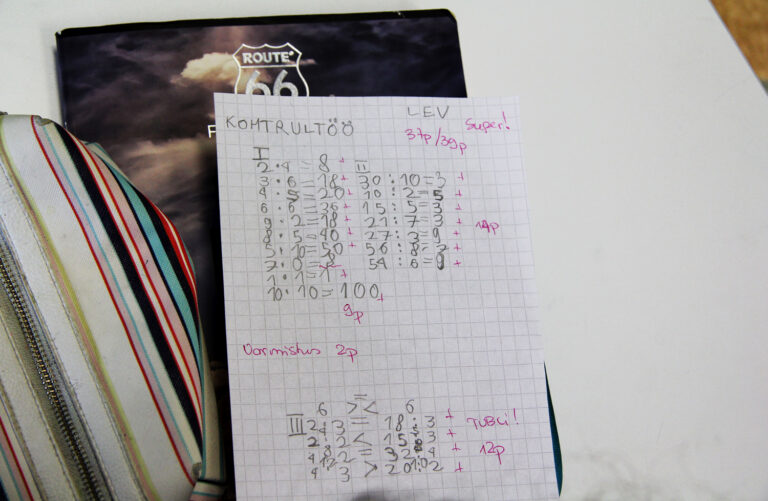 ROUTE
66
KOMTRULTÖÖ LEV
37p/39p Super!
I II
2·4=8 +
3·6=18 + 30:10=3 +
4·5=20 + 10:2=5 +
6·6=36 + 15:5=3 +
9·2=18 + 21:7=3 +
8·5=40 + 27:3=9 + 14p
5·10=50 + 56:8=7 +
7·0= 54:6=9 +
1·1=1 +
10·10=100 +
9p
Vormistus 2p
6 >< = 6
III 2·3 = 18:3 + TUBLI!
2·2 < 15:3 +
4·2 = 32:4 + 12p
4·3 > 20:2 +